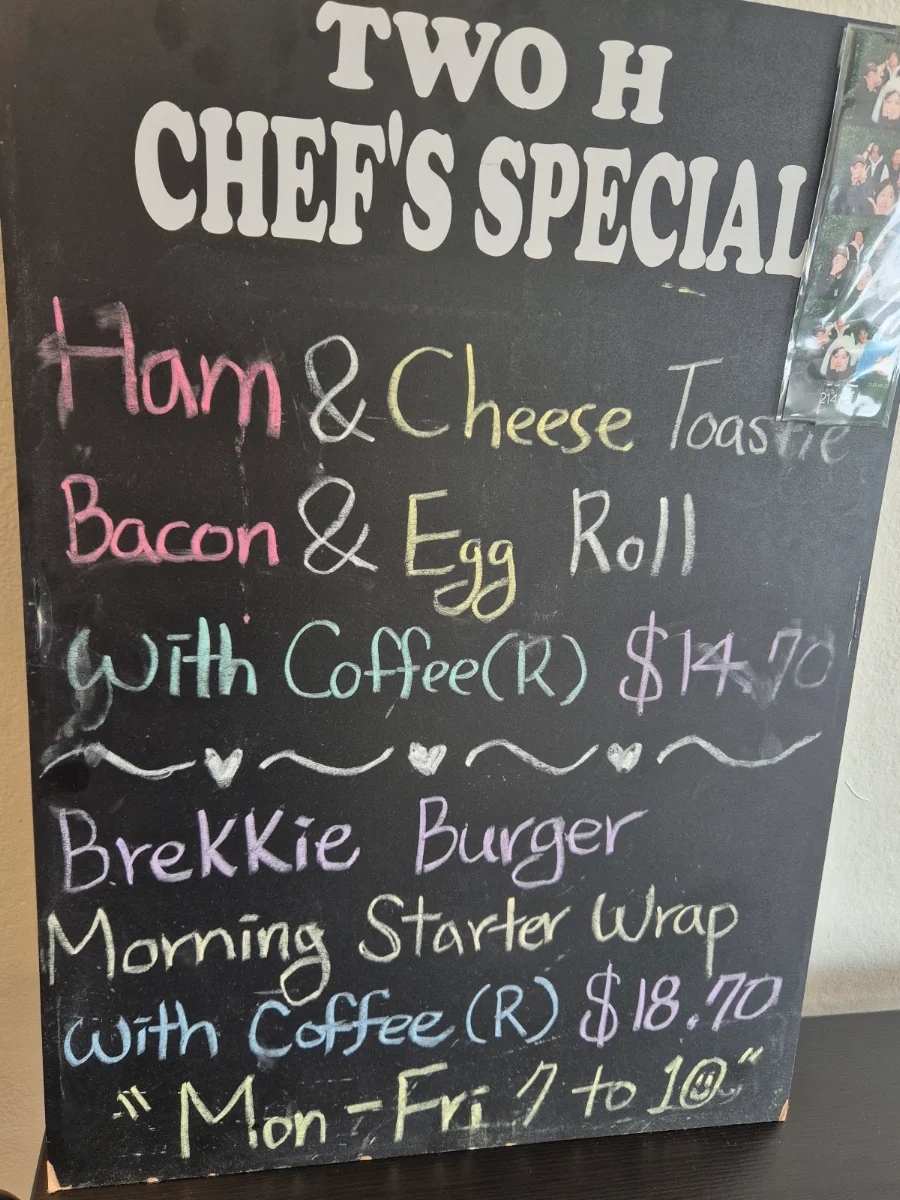 TWO H
CHEF'S SPECIAL
Ham & Cheese Toastie
Bacon & Egg Roll
With Coffee (R) $14.70
Brekkie Burger
Morning Starter Wrap
With Coffee (R) $18.70
"Mon - Fri 7 to 10"